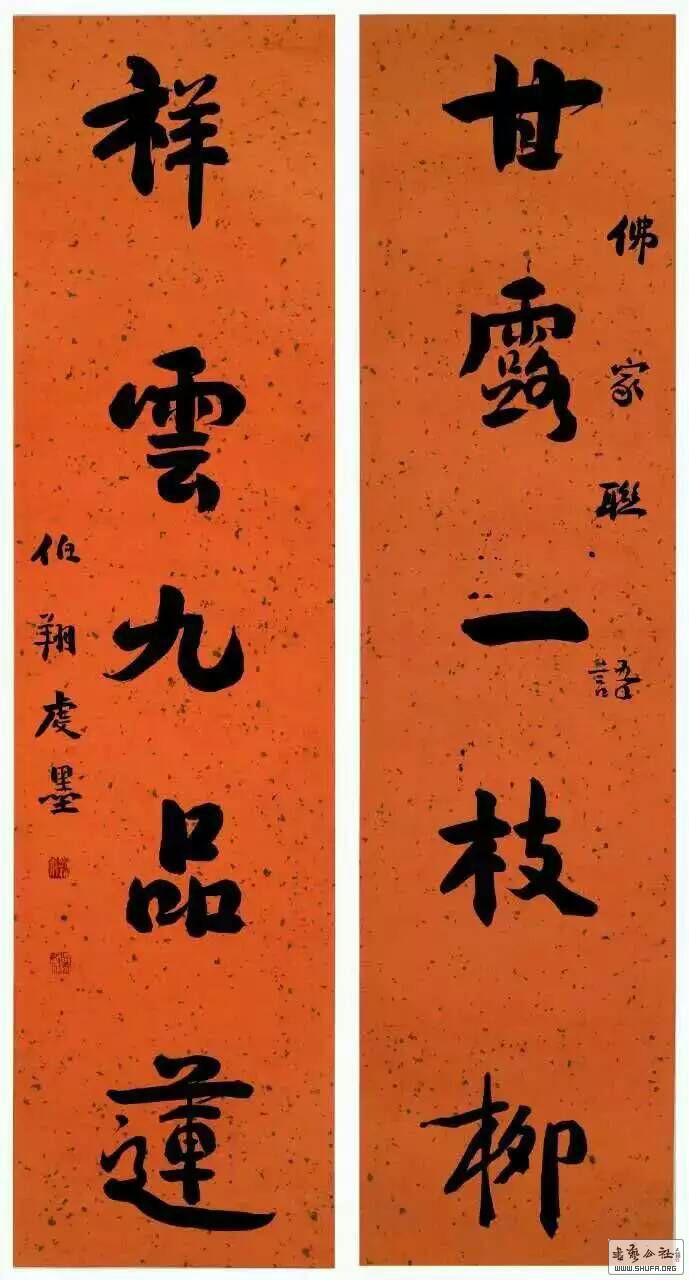 甘露一枝柳
佛家聯語
祥雲九品蓮
伯翔虔墨
WWW.SHUFA.ORG